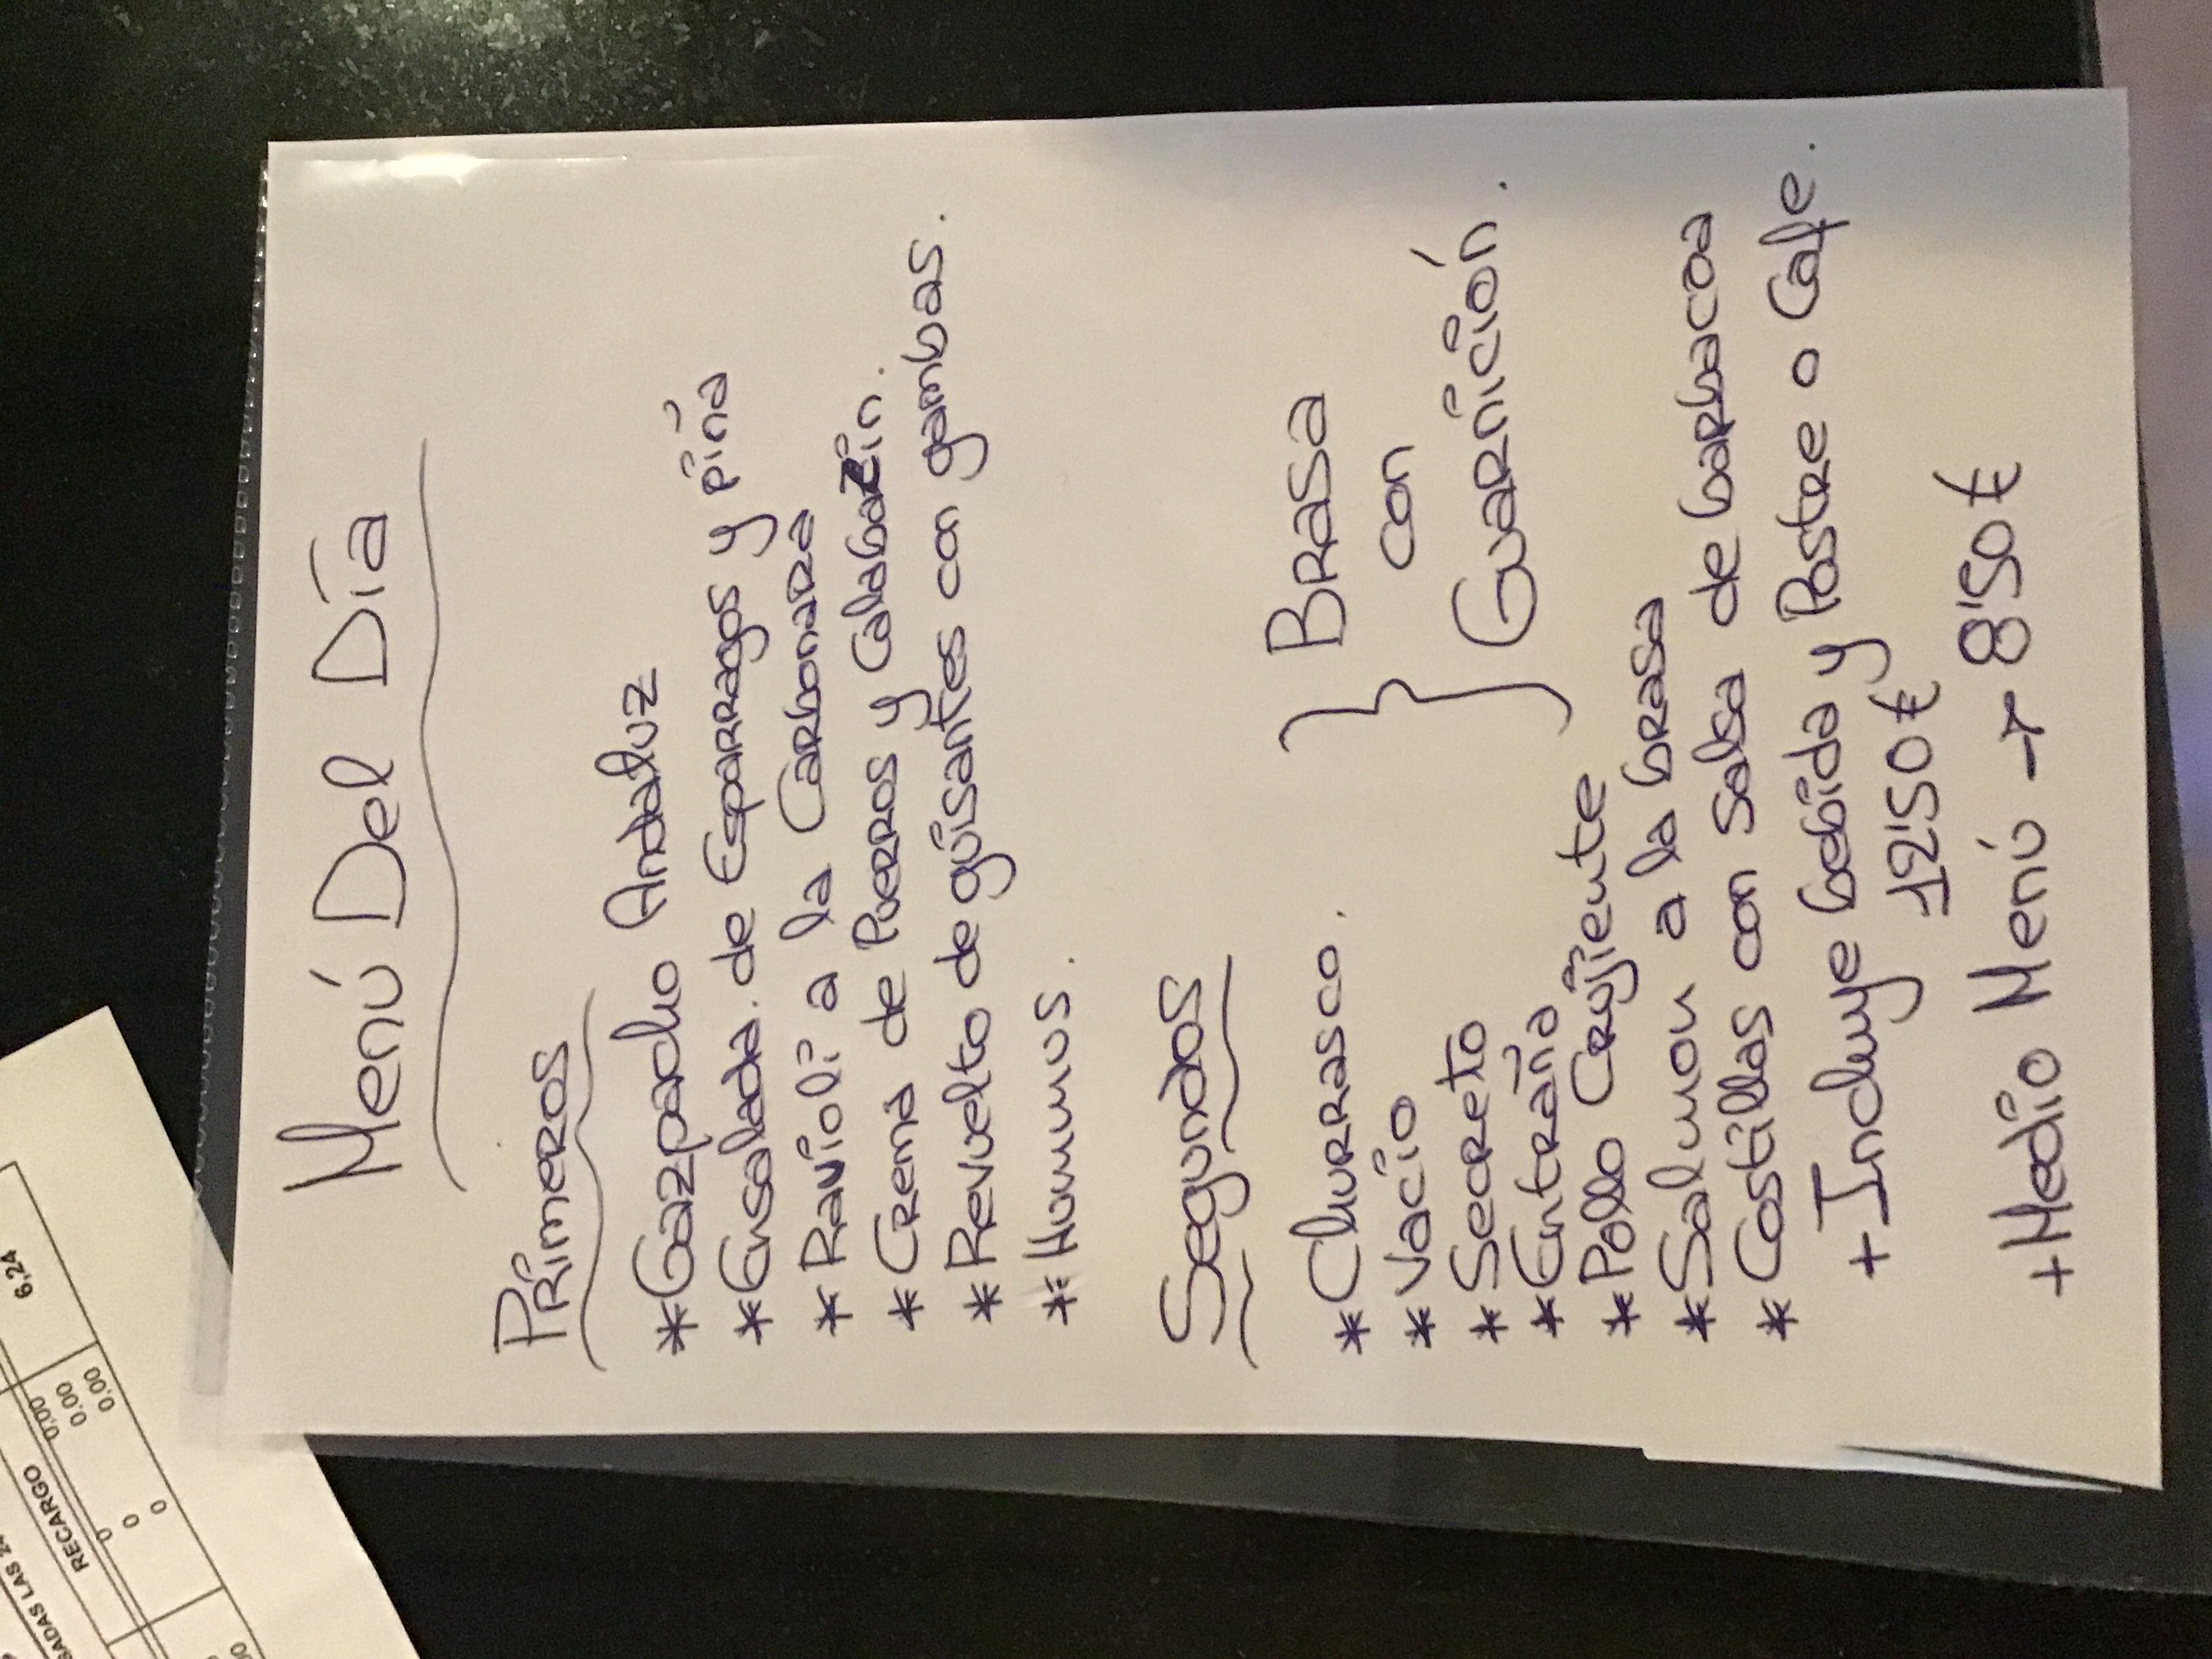 Menú Del Día
Primeros
* Gazpacho Andaluz
* Ensalada. de Esparragos y piña
* Ravioli a la Carbonara
* Crema de Puerros y Calabazin.
* Revuelto de guisantes con gambas.
* Hummus.
Segundos
* Churrasco.
* Vacío
* Secreto
* Entraña
} Brasa
con
Guarnición.
* Pollo Crujiente
* Salmon a la brasa
* Costillas con Salsa de barbacoa
+ Incluye bebida y Postre o Cafe.
12'50€
+ Medio Menú → 8'50€
6,24
0,00
0,00
0,00
RECARGO
0
0
0